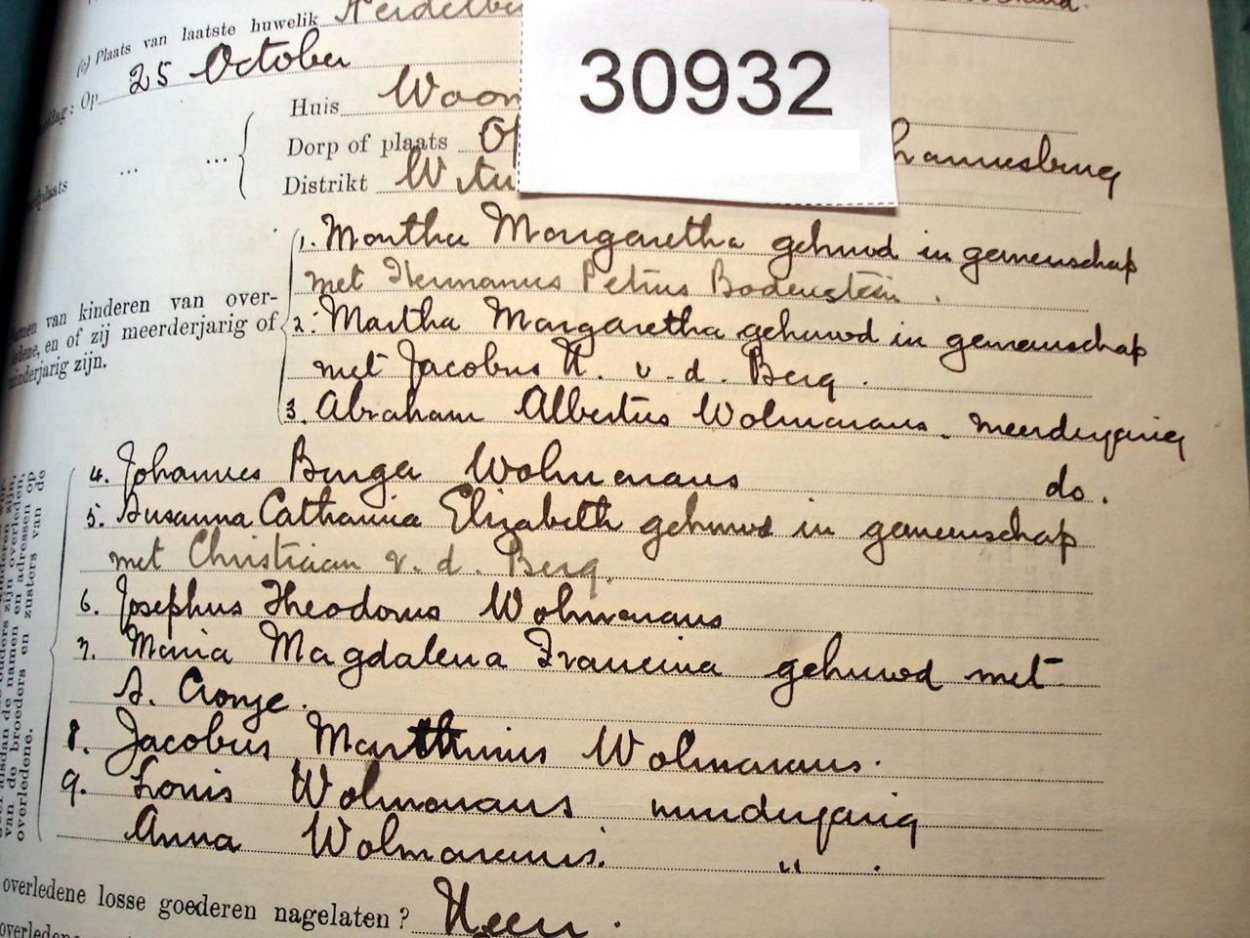 (c) Plaats van laatste huwelik Heidelbe
Op 25 October
30932
Huis Woon
Dorp of plaats Op hannesburg
Distrikt Witw
1. Martha Margaretha gehuwd in gemeenschap
met Hermanus Petrus Bodenstein.
van kinderen van over-
en of zij meerderjarig of
minderjarig zijn.
2. Martha Margaretha gehuwd in gemeenschap
met Jacobus H. v. d. Berg.
3. Abraham Albertus Wolmarans. meerderjarig
4. Johannes Burger Wolmarans do.
5. Susanna Catharina Elizabeth gehuwd in gemeenschap
met Christiaan v. d. Berg.
6. Josephus Theodorus Wolmarans
7. Maria Magdalena Francina gehuwd met
S. Cronje.
8. Jacobus Marthinus Wolmarans.
9. Louis Wolmarans minderjarig
Anna Wolmarans. " .
alsdan de namen en adressen op
van de broeders en zusters van de
overledene.
overledene losse goederen nagelaten? Neen.